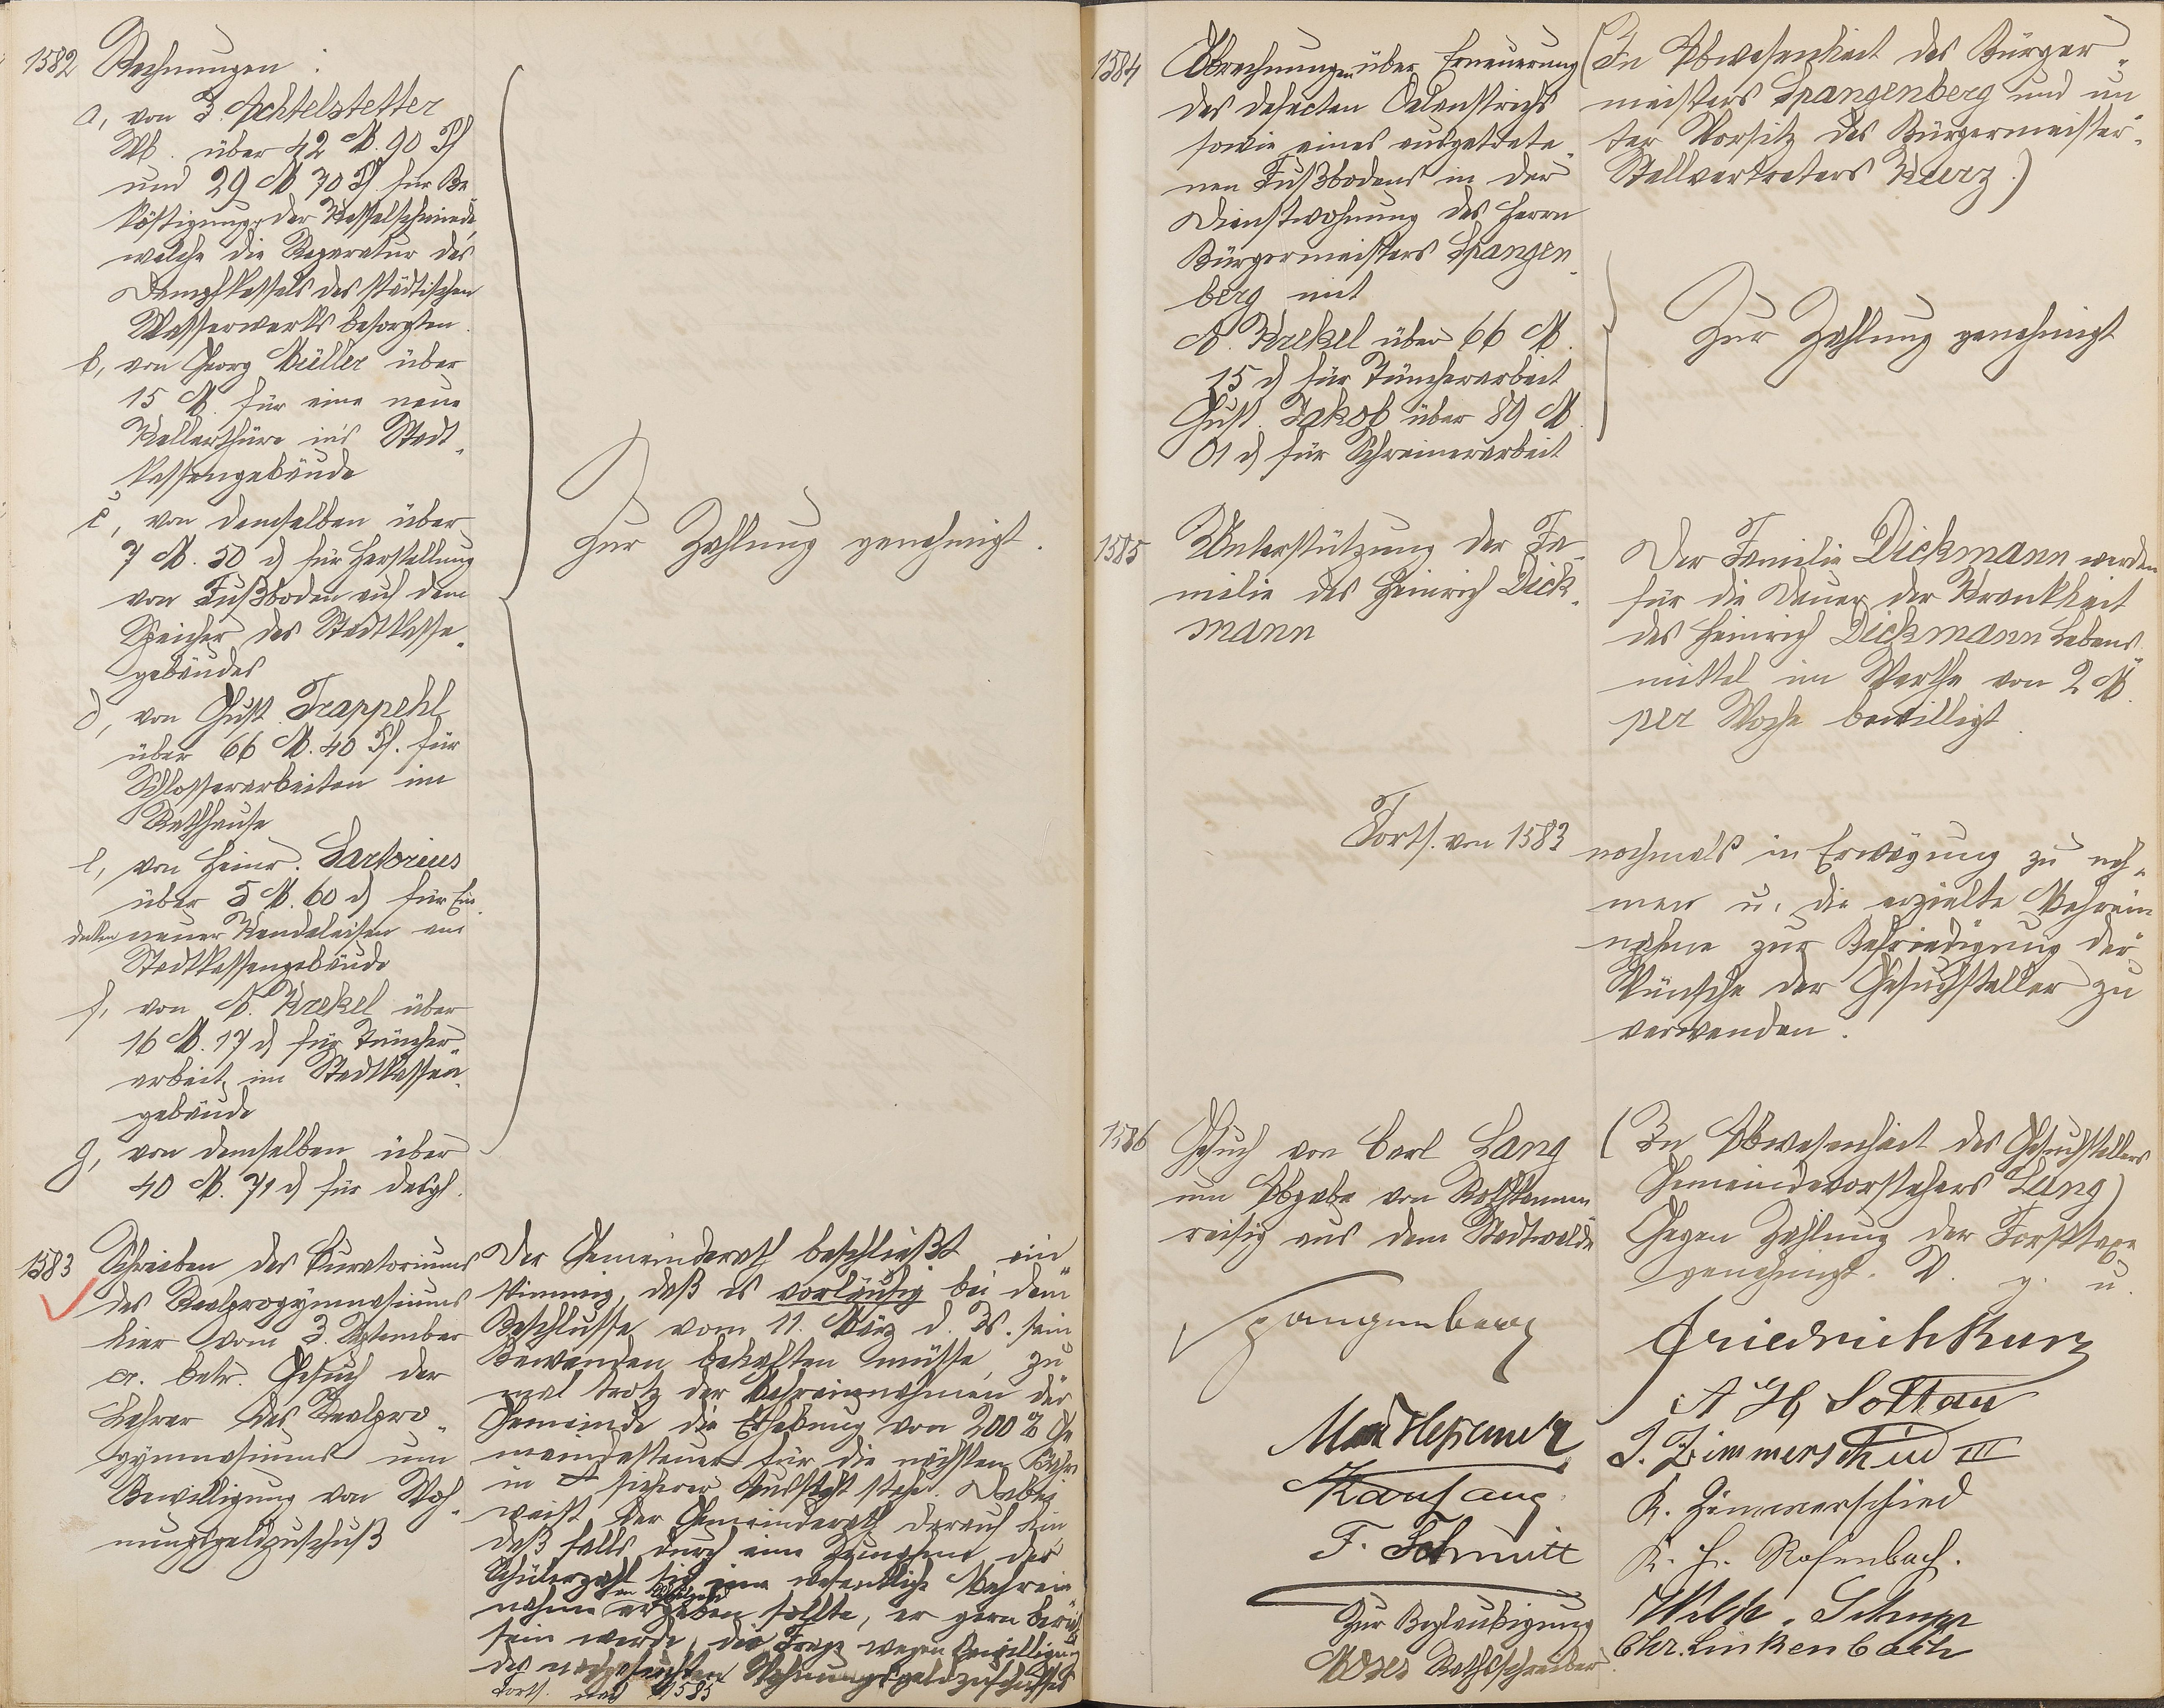 1582 Rechnungen:
a, von J. Achtelstetter
Wb. über 42 M. 90 Pf
und 29 M 70 Pf. für Be-
köstigung der Kesselschmiede,
welche die Reparatur des
Dampfkessels des städtischen
Wasserwerks besorgten.
b, von Georg Müller über
15 M. für eine neue
Kellerthüre in's Stadt-
kassengebäude
c, von demselben über
7 M. 50 d für Herstellung
von Fußboden auf dem
Speicher des Stadtkasse-
gebäudes
d, von Gust. Trappehl
über 66 M. 40 Pf. für
Schlosserarbeiten im
Rathhause
e, von Heinr. Sartorius
über 5 M. 60 d für Ein-
decken neuer Kandeleisen am
Stadtkassengebäude
f, von A. Krekel über
16 M. 17 d für Tüncher-
arbeit im Stadtkassen-
gebäude
g, von demselben über
40 M. 71 d für desgl.
Zur Zahlung genehmigt.
1583 Schreiben des Kuratoriums
des Realprogymnasiums
hier vom 3. September
cr. betr. Gesuch der
Lehrer des Realpro-
gymnasiums um
Bewilligung von Woh-
nungsgeldzuschuß
Der Gemeinderath beschließt ein-
stimmig, daß es vorläufig bei dem
Beschlusse vom 11. März d. Js. sein
Bewenden behalten müsse, zu-
mal trotz der Mehreinnahmen der
Gemeinde die Erhebung von 200 % Ge-
meindesteuer für die nächsten Jahre
in sicherer Aussicht stehe. Dabei
weist der Gemeinderath darauf hin
daß falls durch eine Zunahme der
Schülerzahl sich eine wesentliche Mehrein-
nahme an Schulgeld ergeben sollte, er gern bereit
sein werde, die Frage wegen Bewilligung
des nachgesuchten Wohnungsgeldzuschusses
Forts. nach 1585
1584 Abrechnungen über Erneuerung
des defecten Oelanstrichs
sowie eines ausgetrete-
nen Fußbodens in der
Dienstwohnung des Herrn
Bürgermeisters Spangen-
berg mit
A. Krekel über 66 M.
15 d für Tüncherarbeit
Gust. Jakob über 89 M.
01 d für Schreinerarbeit
(In Abwesenheit des Bürger-
meisters Spangenberg und un-
ter Vorsitz des Bürgermeister-
Stellvertreters Kurz.)
Zur Zahlung genehmigt
1585 Unterstützung der Fa-
milie des Heinrich Dick-
mann
Der Familie Dickmann werden
für die Dauer der Krankheit
des Heinrich Dickmann Lebens-
mittel im Werthe von 2 M.
per Woche bewilligt.
Forts. von 1583 nochmals in Erwägung zu neh-
men u. die erzielte Mehrein-
nahme zur Befriedigung der
Wünsche der Gesuchsteller zu
verwenden.
1586 Gesuch von Carl Lang
um Abgabe von Rothtannen-
reisig aus dem Stadtwalde
(In Abwesenheit des Gesuchstellers
Gemeindevorstehers Lang)
Gegen Zahlung der Forsttaxe
genehmigt. V. g. u.
Spangenberg
Friedrich Kurz
A H Soltau
J. Zimmerschied III
Kaufang
K. Zimmerschied
F. Schmitt
K. H. Rosenbach.
Wilh. Schupp
Zur Beglaubigung
Chr. Linkenbach
Moser Rathschreiber